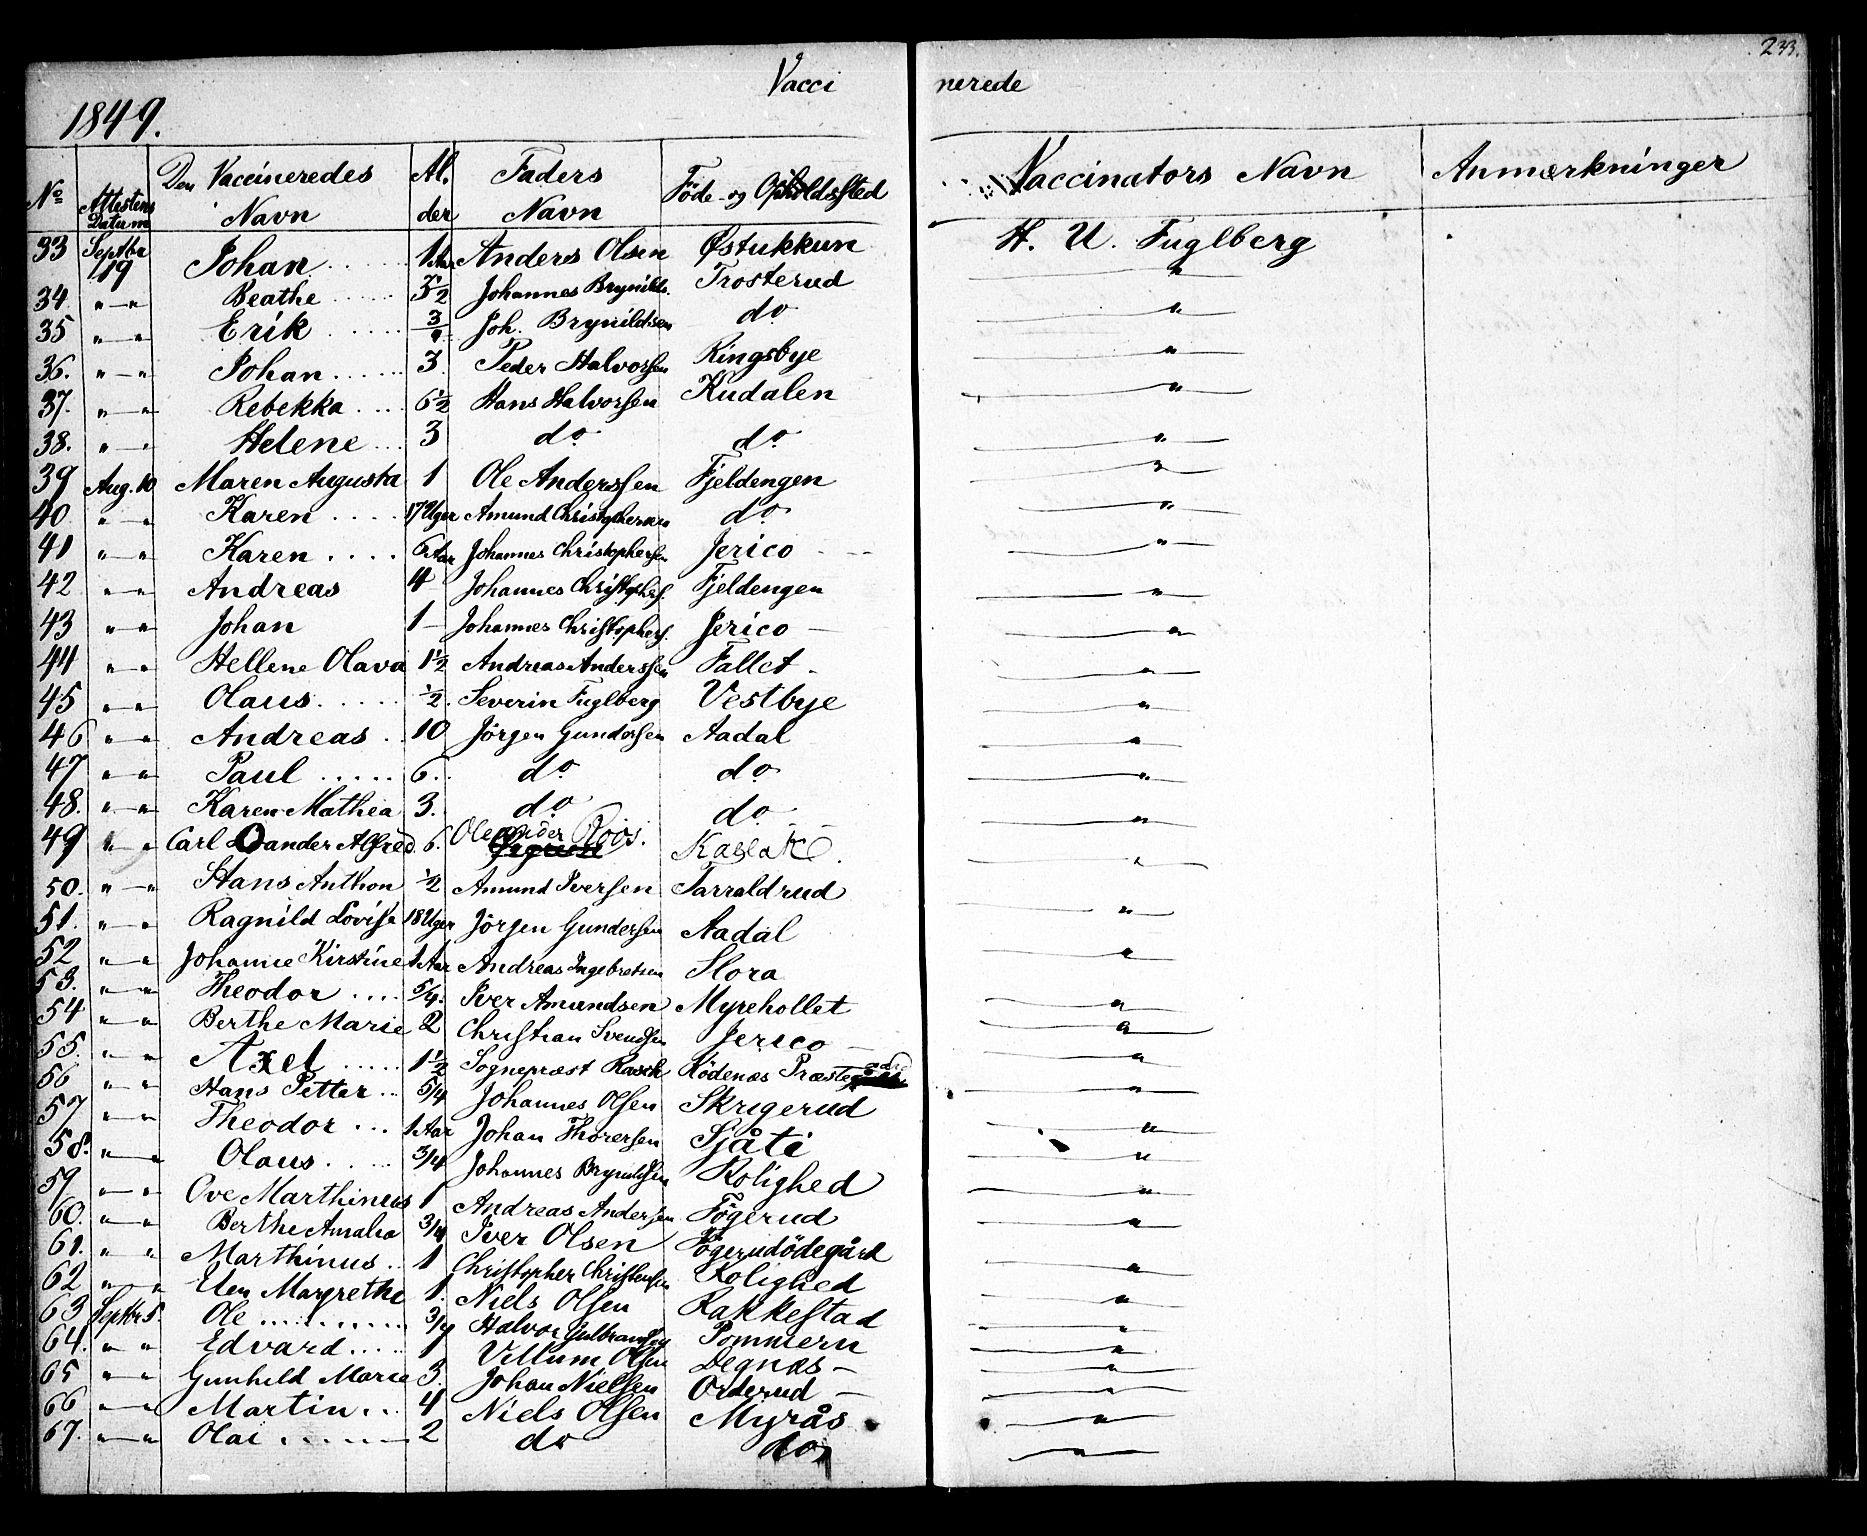 233.
Vaccinerede
1849.
No Attestens Datum Den Vaccineredes Navn Alder Faders Navn Föde- og Opholdssted Vaccinators Navn Anmærkninger
33 Septbr 19 Johan..... 1 Aar Anders Olsen Östukkun H. U. Fuglberg
34. " — " Beathe..... 5 1/2 Johannes Brynilds. Trosterud — " —
35 " — " Erik..... 3/4 Joh. Brynildsen do — " —
36. " — " Johan..... 3 Peder Halvorsen Ringsbye — " —
37. " — " Rebekka.... 6 1/2 Hans Halvorsen Kudalen — " —
38. " — " Helene... 3 do do — " —
39 Aug. 10 Maren Augusta 1 Ole Anderssen Fjeldengen — " —
40 " — " Karen..... 17 Uger Amund Christophersen do — " —
41 " — " Karen.... 6 Aar Johannes Christophersen Jerico — " —
42 " — " Andreas 4 Johannes Christophers. Fjeldengen — " —
43 " — " Johan 1 — Johannes Christophers. Jerico — — " —
44 " — " Hellene Olava 1 1/2 Andreas Anderssen Fallet — " —
45 " — " Olaus..... 1/2. Severin Fuglberg Vestbye — " —
46 " — " Andreas.. 10 Jörgen Gundersen Aadal — " —
47 " — " Paul..... 6.. do do — " —
48. " — " Karen Mathea 3. do do — " —
49 " — " Carl Oander Alfred. 6. Oleander Roos. Kaslak. — " —
50. " — " Hans Anthon 1/2 Amund Iversen Tarraldrud — " —
51. " — " Ragnild Lovise 18 Uger Jörgen Gundersen Aadal — " —
52 " — " Johanne Kirstine 1 Aar Andreas Ingebretsen Slora — " —
53. " — " Theodor.... 5/4. Iver Amundsen Myrehollet — " —
54 " — " Berthe Marie 2 Christian Svendsen Jerico — — " —
55. " — " Axel..... 1 1/2 Sognepræst Rasch Rödenæs Præste — " —
56 " — " Hans Petter.. 5/4 Johannes Olsen Skrigerud — " —
57 " — " Theodor... 1 Aar Johan Thoresen Sjåti — " —
58. " — " Olaus.... 3/4 Johannes Brynildsen Rolighed — " —
59 " — " Ove Marthinus 1 Andreas Andersen Fögerud — " —
60. " — " Berthe Amalia 3/4 Iver Olsen Fögerudödegård — " —
61. " — " Marthinus.. 1 Christopher Christensen Rolighed — " —
62 " — " Elen Margrethe 1. Niels Olsen Rakkestad — " —
63 Septbr 5. Ole.......... 3/4 Halvor Gulbrandsen Pommern — " —
64. " — " Edvard.... 1 Villum Olsen Degnæs — — " —
65 " — " Gunhild Marie 3. Johan Nielsen Orderud — — " —
66 " — " Martin... 4 Niels Olsen Myrås — " —
67. " — " Olai..... 2 do do — " —